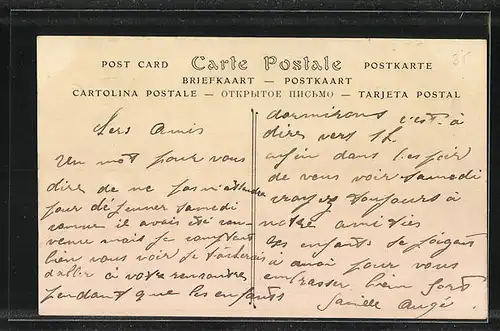 POST CARD Carte Postale POSTKARTE
BRIEFKAART — POSTKAART
CARTOLINA POSTALE — ОТКРЫТОЕ ПИСЬМО — TARJETA POSTAL
Chers Amis
un mot pour vous
dire de ne pas m'attendre
pour déjeuner samedi
comme il avait été con-
venue mais je comptant
bien vous voir je tacherais
d'aller a votre rencontre
pendant que les enfants
dormirons c'est. à
dire vers 1h
afin dans l'espoir
de vous voir samedi
croyez toujours à
notre amitiés
les enfants se joigent
à moi pour vous
embrasser bien fort
Famille Augé.
35